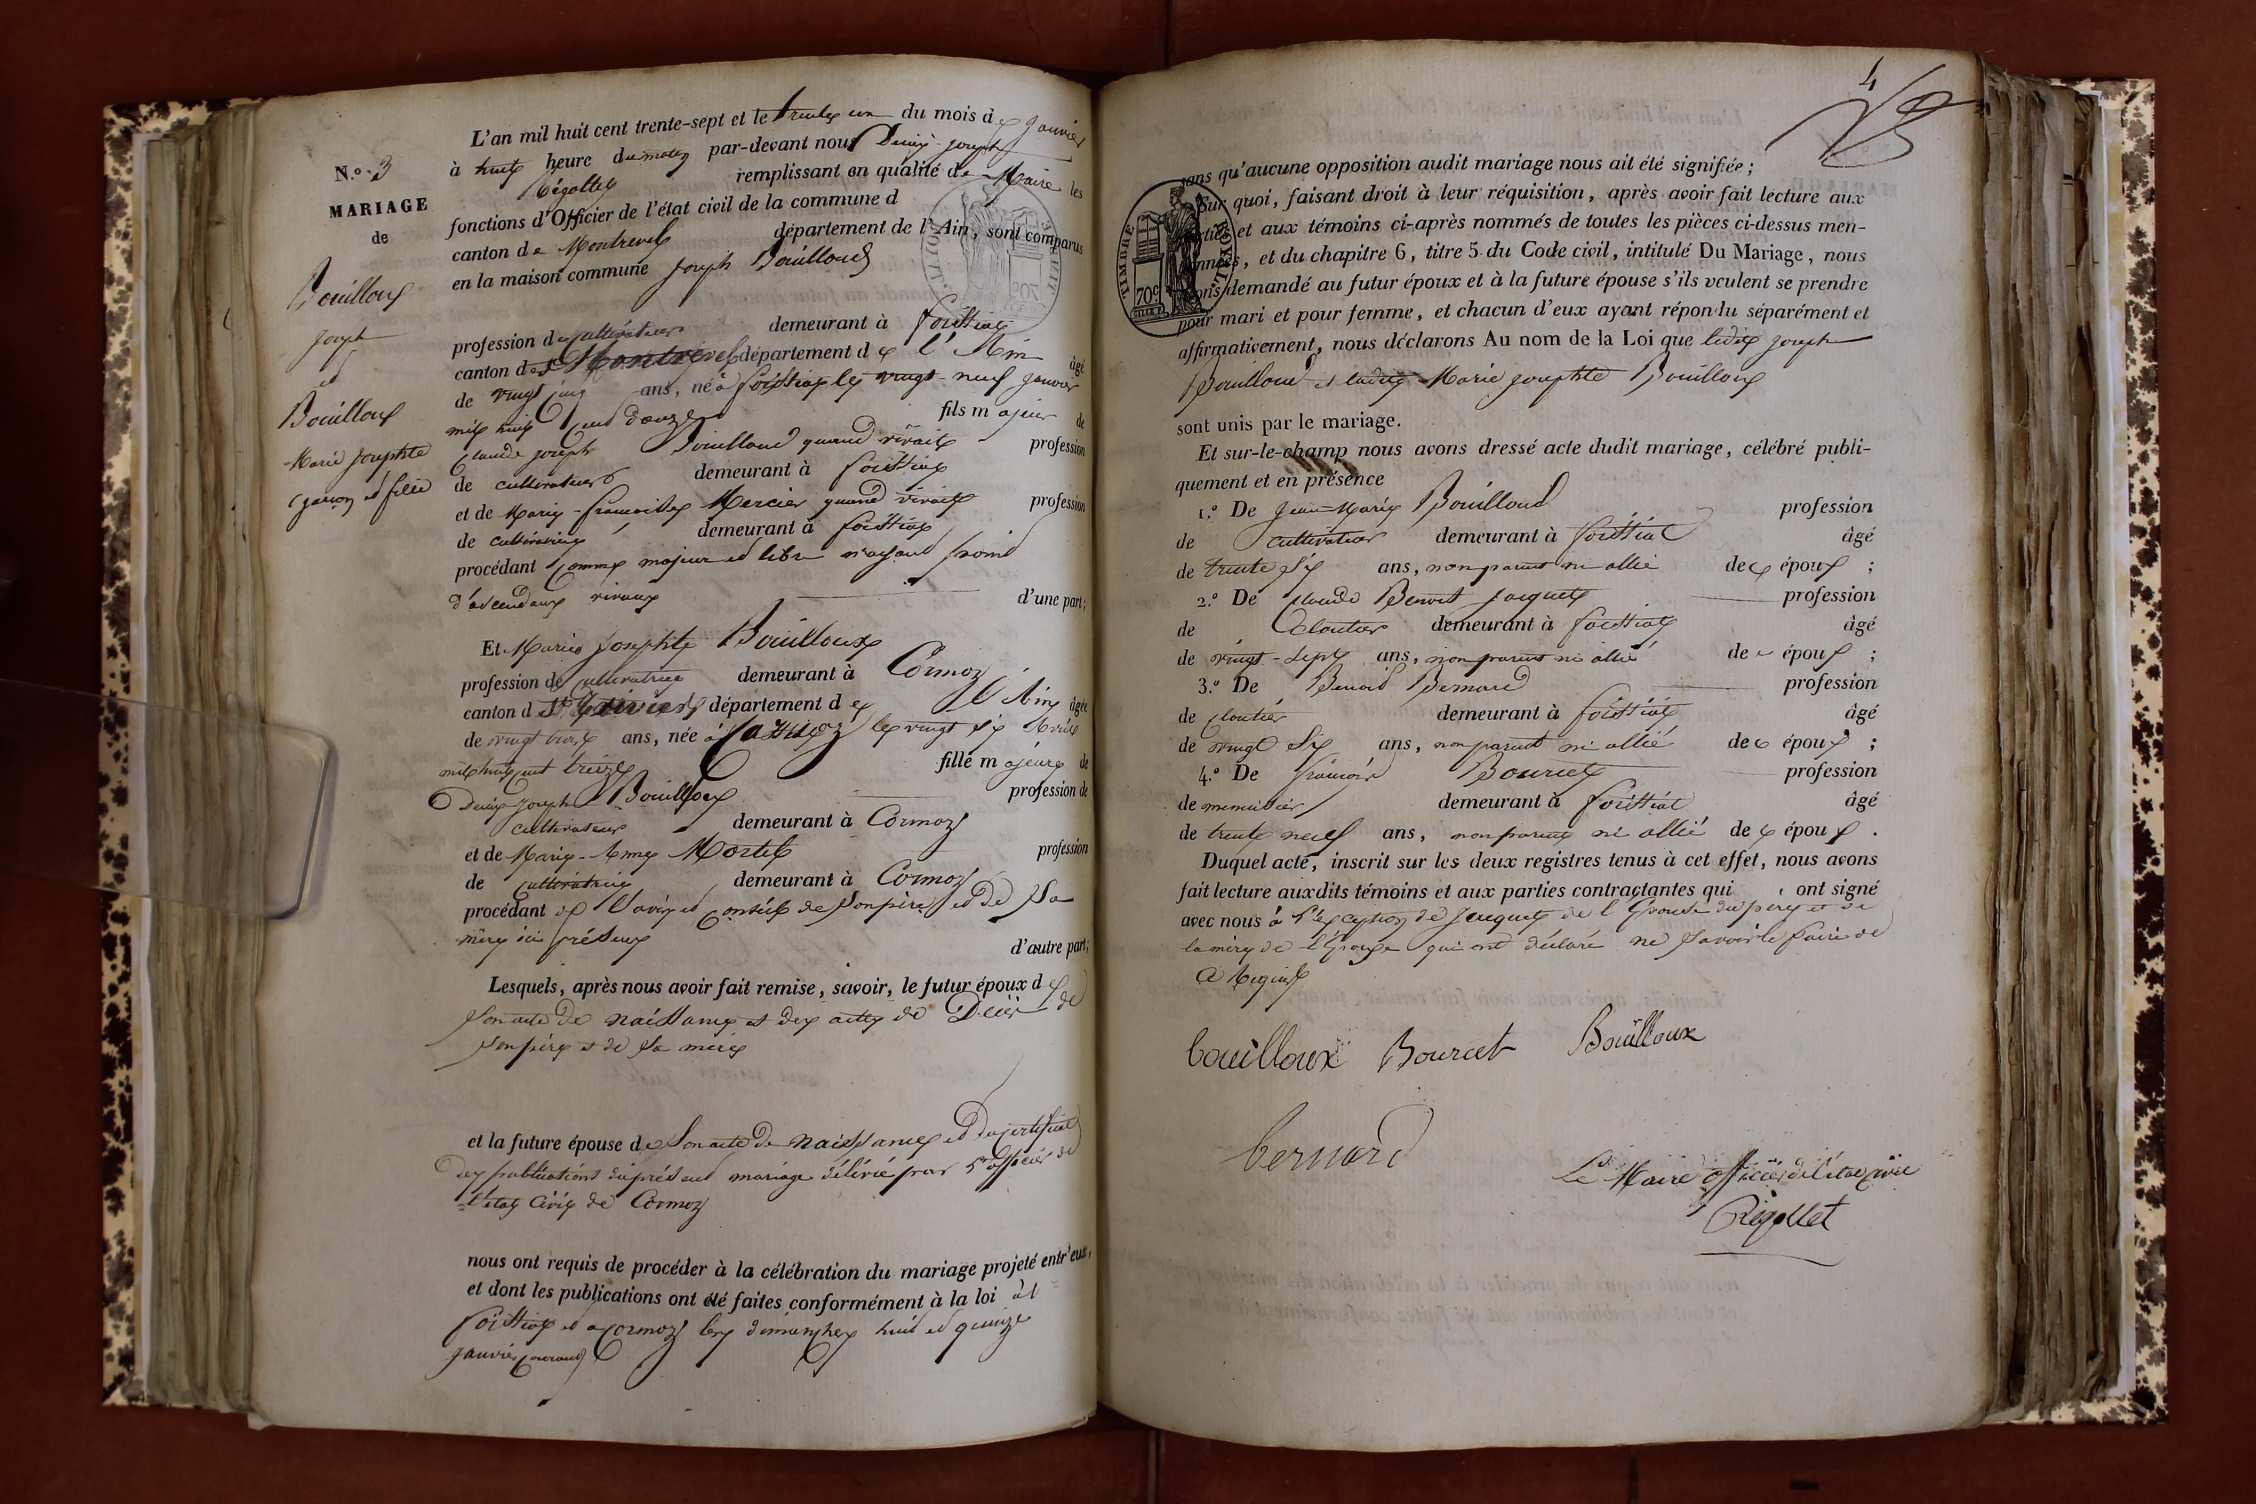 N.o 3
MARIAGE
de
Bouilloux
Joseph
et
Bouilloux
Marie Josephte
garçon et fille
L'an mil huit cent trente-sept et le trente un du mois de janvier
à huit heure du matin par-devant nous Denis Joseph
Rigollet remplissant en qualité de Maire les
fonctions d'Officier de l'état civil de la commune d
canton de Montrevel département de l'Ain, sont comparus
en la maison commune Joseph Bouilloud
profession de cultivateur demeurant à foissiat
canton de Montrevel département de l'Ain âgé
de vingt cinq ans, né à foissiat le vingt-neuf janvier
mil huit cent douze fils majeur de
Claude Joseph Bouilloud quand vivait profession
de cultivateur demeurant à foissiat
et de Marie-françoise Mercier quand vivait profession
de cultivatrice demeurant à foissiat
procédant comme majeur et libre n'ayant point
d'ascendants vivants d'une part;
Et Marie Josephte Bouilloux
profession de cultivatrice demeurant à Cormoz
canton d St Trivier département de l'Ain âgée
de vingt trois ans, née à le vingt six Avril
mil huit cent treize fille majeure de
Denis Joseph Bouilloux profession de
cultivateur demeurant à Cormoz
et de Marie-Anne Mortel profession
de cultivatrice demeurant à Cormoz
procédant de l'avis et conseil de son père et de sa
mère ici présents d'autre part;
Lesquels, après nous avoir fait remise, savoir, le futur époux de
son acte de naissance et des actes de Décès de
son père et de sa mère
et la future épouse de son acte de naissance et du certificat
des publications du présent mariage délivré par l'officier de
l'état civil de Cormoz
nous ont requis de procéder à la célébration du mariage projeté entr'eux,
et dont les publications ont été faites conformément à la loi à
foissiat et à Cormoz les dimanches huit et quinze
janvier courant
4
TIMBRE ROYAL
70c
sans qu'aucune opposition audit mariage nous ait été signifiée;
Sur quoi, faisant droit à leur réquisition, après avoir fait lecture aux
parties et aux témoins ci-après nommés de toutes les pièces ci-dessus men-
tionnées, et du chapitre 6, titre 5 du Code civil, intitulé Du Mariage, nous
avons demandé au futur époux et à la future épouse s'ils veulent se prendre
pour mari et pour femme, et chacun d'eux ayant répondu séparément et
affirmativement, nous déclarons Au nom de la Loi que ledit Joseph
Bouilloud et ladite Marie Josephte Bouilloux
sont unis par le mariage.
Et sur-le-champ nous avons dressé acte dudit mariage, célébré publi-
quement et en présence
1.o De Jean-Marie Bouilloud profession
de cultivateur demeurant à foissiat âgé
de trente six ans, non parent ni allié des époux;
2.o De Claude Benoit Jacquet profession
de Cloutier demeurant à foissiat âgé
de vingt-sept ans, non parent ni allié des époux;
3.o De Benoit Bernard profession
de cloutier demeurant à foissiat âgé
de vingt six ans, non parent ni allié des époux;
4.o De françois Bourcet profession
de menuisier demeurant à foissiat âgé
de trente neuf ans, non parent ni allié des époux.
Duquel acte, inscrit sur les deux registres tenus à cet effet, nous avons
fait lecture auxdits témoins et aux parties contractantes qui ont signé
avec nous à l'exception de Jacquet de l'Epouse du père et de
la mère de l'Epouse qui ont déclaré ne savoir le faire de
ce Requis
bouilloux Bourcet Bouilloux
bernard
Le Maire officier de l'état civil
Rigollet